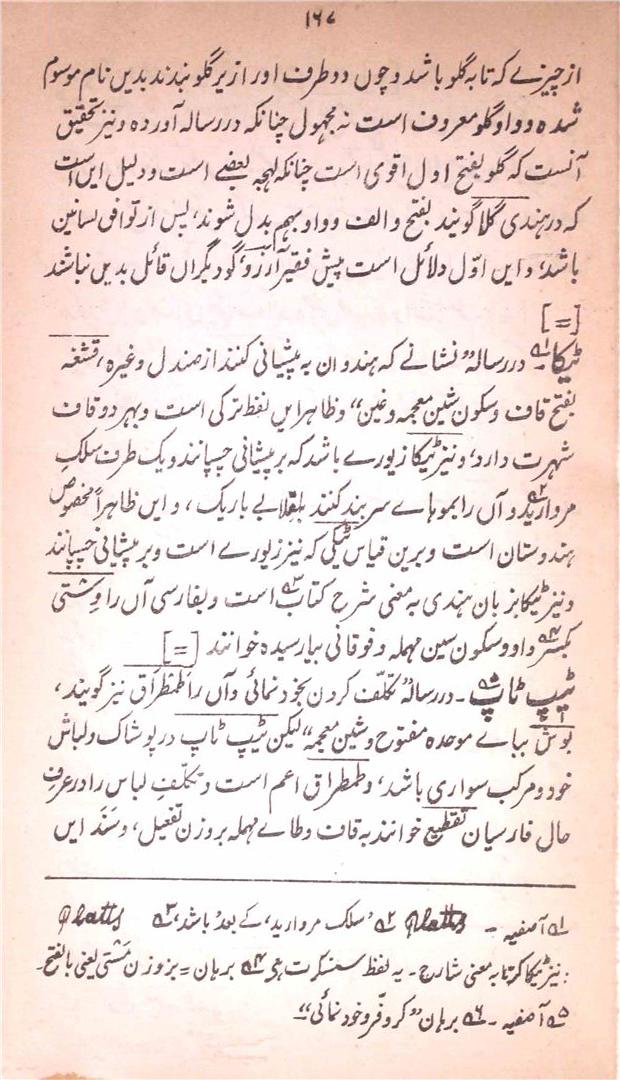 ۱۶۷
از چیزے کہ تا بہ گلو باشد و چوں دو طرف اور ازیر گلو بندند بدیں نام موسوم
شدہ و واو گلو معروف است نہ مجہول چنانکہ در رسالہ آوردہ و نیز تحقیق
آنست کہ گلو بفتح اول اقوی است چنانکہ لہجہ بعضے است و دلیل ایں است
کہ در ہندی گلا گویند بفتح و الف و واو بہم بدل شوند، پس از توافق لسانین
باشد، و ایں اوّل دلائل است پیش فقیر آرزو، گو دیگراں قائل بدیں نباشد
[=]
ٹیکا ۱؎ ۔ در رسالہ ”نشانے کہ ہندوان بہ پیشانی کنند از صندل وغیرہ، قشغہ
بفتح قاف و سکون شین معجمہ و غین“ و ظاہرا ایں لفظ ترکی است و بہر دو قاف
شہرت دارد، و نیز ٹیکا زیورے باشد کہ بر پیشانی چسپانند و یک طرف سلکِ
مروارید ۲؎ و آں را بموہاے سر بند کنند بقلابے باریک، و ایں ظاہراً مخصوص
ہندوستان است و برین قیاس ٹیکی کہ نیز زیورے است و بر پیشانی چسپانند
و نیز ٹیکا بزبان ہندی بہ معنی شرح کتاب ۳؎ است و بفارسی آں را وِشتی
بکسر ۴؎ واو و سکون سین مہملہ و فوقانی بیا رسیدہ خوانند [=]
ٹیپ ٹاپ ۵؎ ۔ در رسالہ ”تکلّف کردن بخود نمائی و آں را طمطراق نیز گویند،
بوش ۶؎ بباے موحدہ مفتوح و شین معجمہ“ لیکن ٹیپ ٹاپ در پوشاک و لباس
خود و مرکب سواری باشد، و طمطراق اعم است و تکلّفِ لباس را در عرفِ
حال فارسیان تقطیع خوانند بہ قاف و طاے مہملہ بر وزن تفعیل، و سَنَد ایں
۱؎ آصفیہ ۔ Platts ۲؎ ’سلک مروارید‘، کے بعد ’باشد‘، ۳؎ Platts
: نیز ٹیکا کرتا بہ معنی شارح ۔ یہ لفظ سنسکرت ہی ۴؎ برہان = بر وزن مَشتی یعنی بالفتح ۔
۵؎ آصفیہ ۔ ۶؎ برہان ”کر و فر و خود نمائی“ ۔